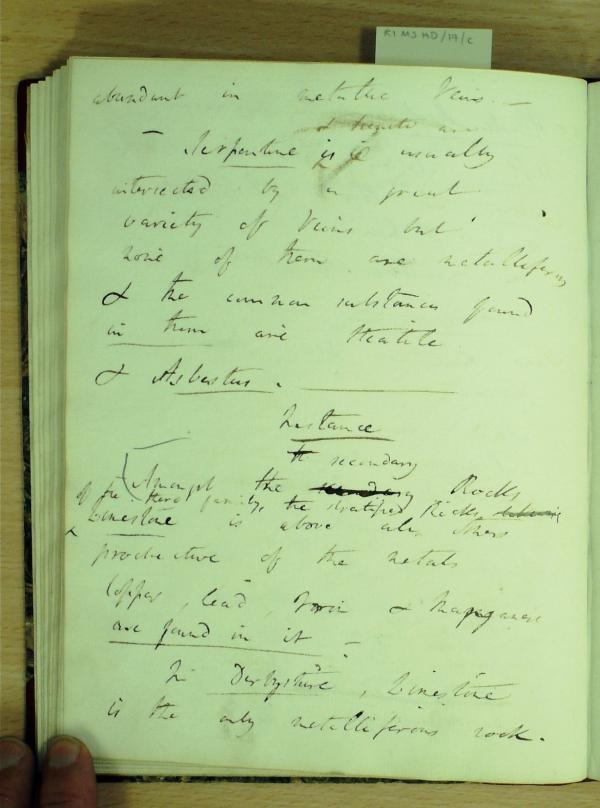 RI MS HD/17/c
abundant in metallic Veins. —
& Sienite are
— Serpentine is usually
intersected by a great
variety of Veins but
none of them are metalliferous
& the common substances found
in them are Steatite
& Asbestus. —
Instance
secondary
Amongst the secondary Rocks
of the third family, the stratified Rocks
Limestone is above all others
productive of the metals
Copper, lead, Iron & Manganese
are found in it —
In Derbyshire, Limestone
is the only metalliferous rock.